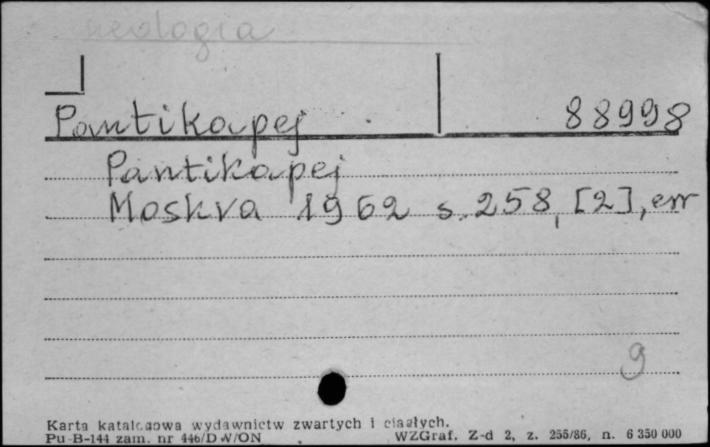 eologia
Pantikapej 88998
Pantikapej
Moskva 1962 s. 258, [2], err
9
Karta katalogowa wydawnictw zwartych i ciągłych.
Pu-B-144 zam. nr 446/DW/ON WZGraf. Z-d 2, z. 255/86, n. 6 350 000